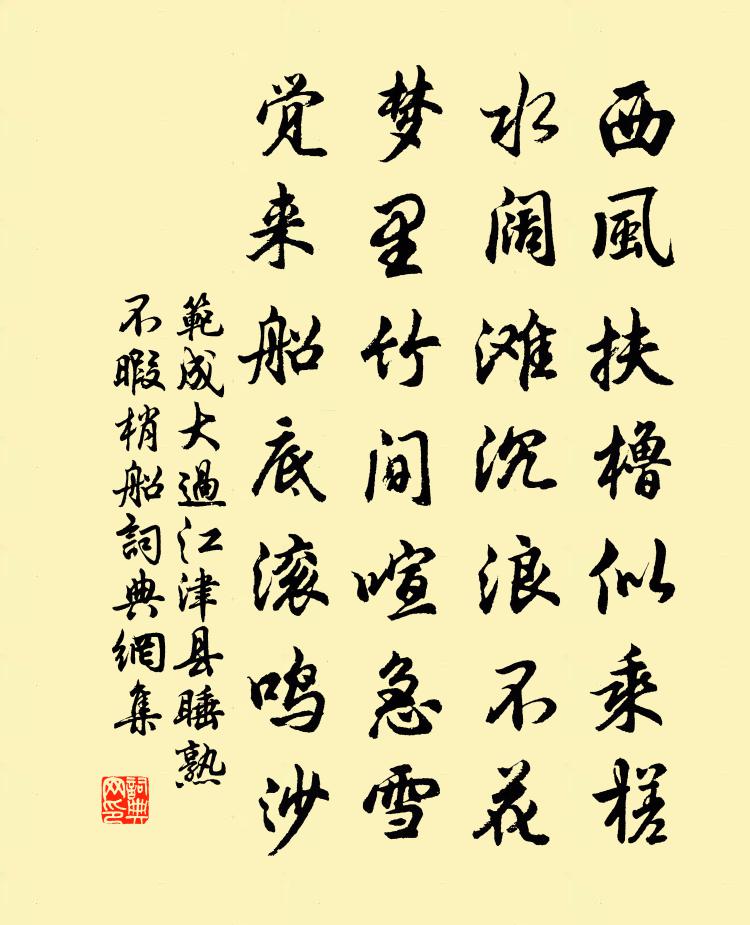 西風扶櫓似乘槎
水阔滩沉浪不花
梦里竹间喧急雪
觉来船底滚鸣沙
範成大過江津县睡熟
不暇梢船詞典網集
詞典網印